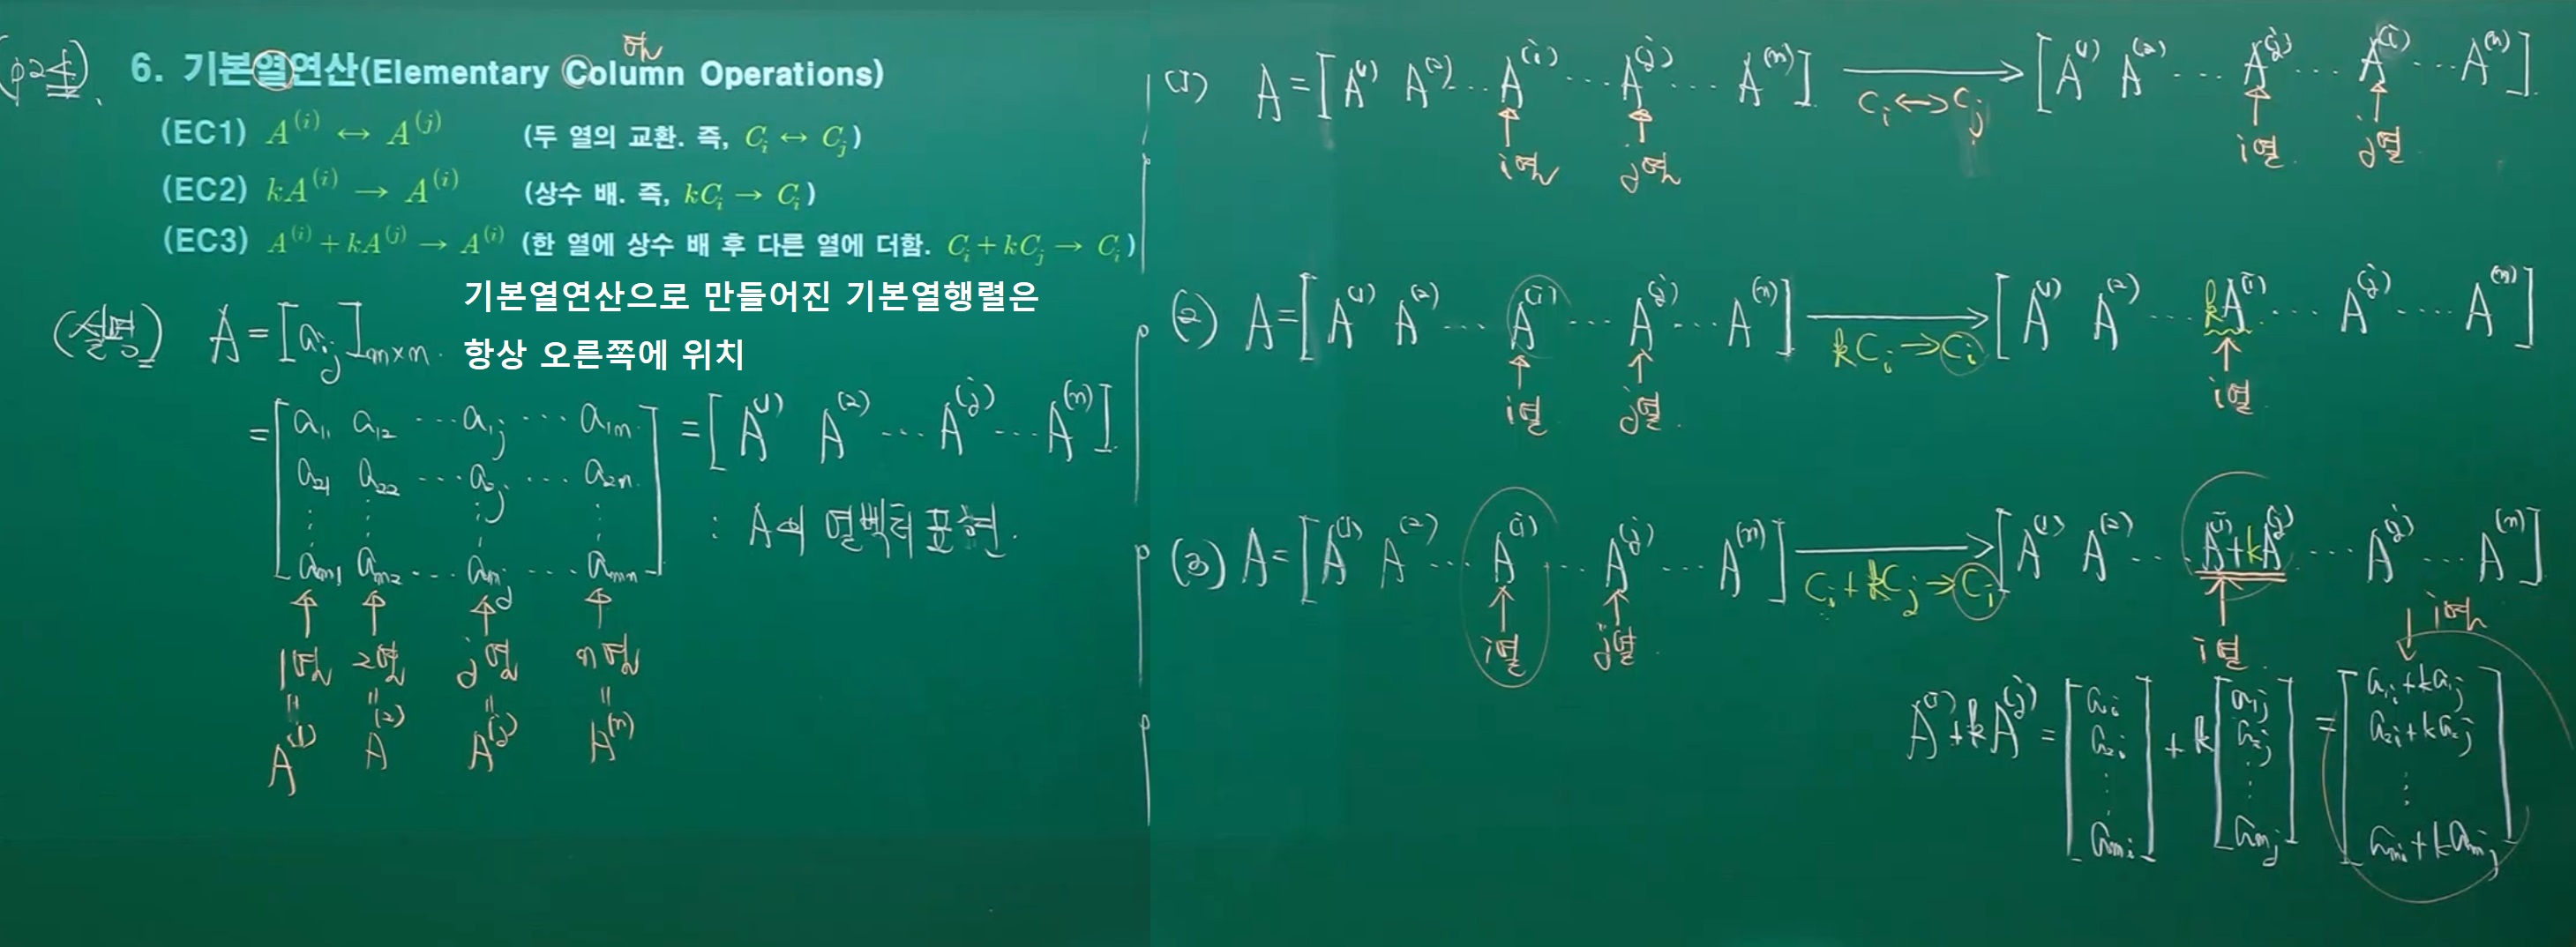 (p24)
6. 기본열연산(Elementary Column Operations)
열
(EC1) A^(i) ↔ A^(j) (두 열의 교환. 즉, C_i ↔ C_j)
(EC2) kA^(i) → A^(i) (상수 배. 즉, kC_i → C_i)
(EC3) A^(i) + kA^(j) → A^(i) (한 열에 상수 배 후 다른 열에 더함. C_i + kC_j → C_i)
기본열연산으로 만들어진 기본열행렬은
항상 오른쪽에 위치
(설명) A = [a_ij]_m×n.
= [a_11 a_12 ⋯ a_1j ⋯ a_1n
a_21 a_22 ⋯ a_2j ⋯ a_2n
⋮ ⋮ ⋮ ⋮
a_m1 a_m2 ⋯ a_mj ⋯ a_mn]
= [A^(1) A^(2) ⋯ A^(j) ⋯ A^(n)]
: A의 열벡터 표현.
↑ ↑ ↑ ↑
1열 2열 j열 n열
= = = =
A^(1) A^(2) A^(j) A^(n)
(1) A = [A^(1) A^(2) ⋯ A^(i) ⋯ A^(j) ⋯ A^(n)] → [A^(1) A^(2) ⋯ A^(j) ⋯ A^(i) ⋯ A^(n)].
C_i ↔ C_j
↑ ↑ ↑ ↑
i열 j열 i열. j열.
(2) A = [A^(1) A^(2) ⋯ A^(i) ⋯ A^(j) ⋯ A^(n)] → [A^(1) A^(2) ⋯ kA^(i) ⋯ A^(j) ⋯ A^(n)]
kC_i → C_i
↑ ↑ ↑
i열 j열. i열.
(3) A = [A^(1) A^(2) ⋯ A^(i) ⋯ A^(j) ⋯ A^(n)] → [A^(1) A^(2) ⋯ A^(i)+kA^(j) ⋯ A^(j) ⋯ A^(n)]
C_i + kC_j → C_i
↑ ↑ ↑
i열 j열. i열.
↓ i열
A^(i) + kA^(j) = [a_1i a_2i ⋮ a_mi] + k[a_1j a_2j ⋮ a_mj] = [a_1i+ka_1j a_2i+ka_2j ⋮ a_mi+ka_mj]